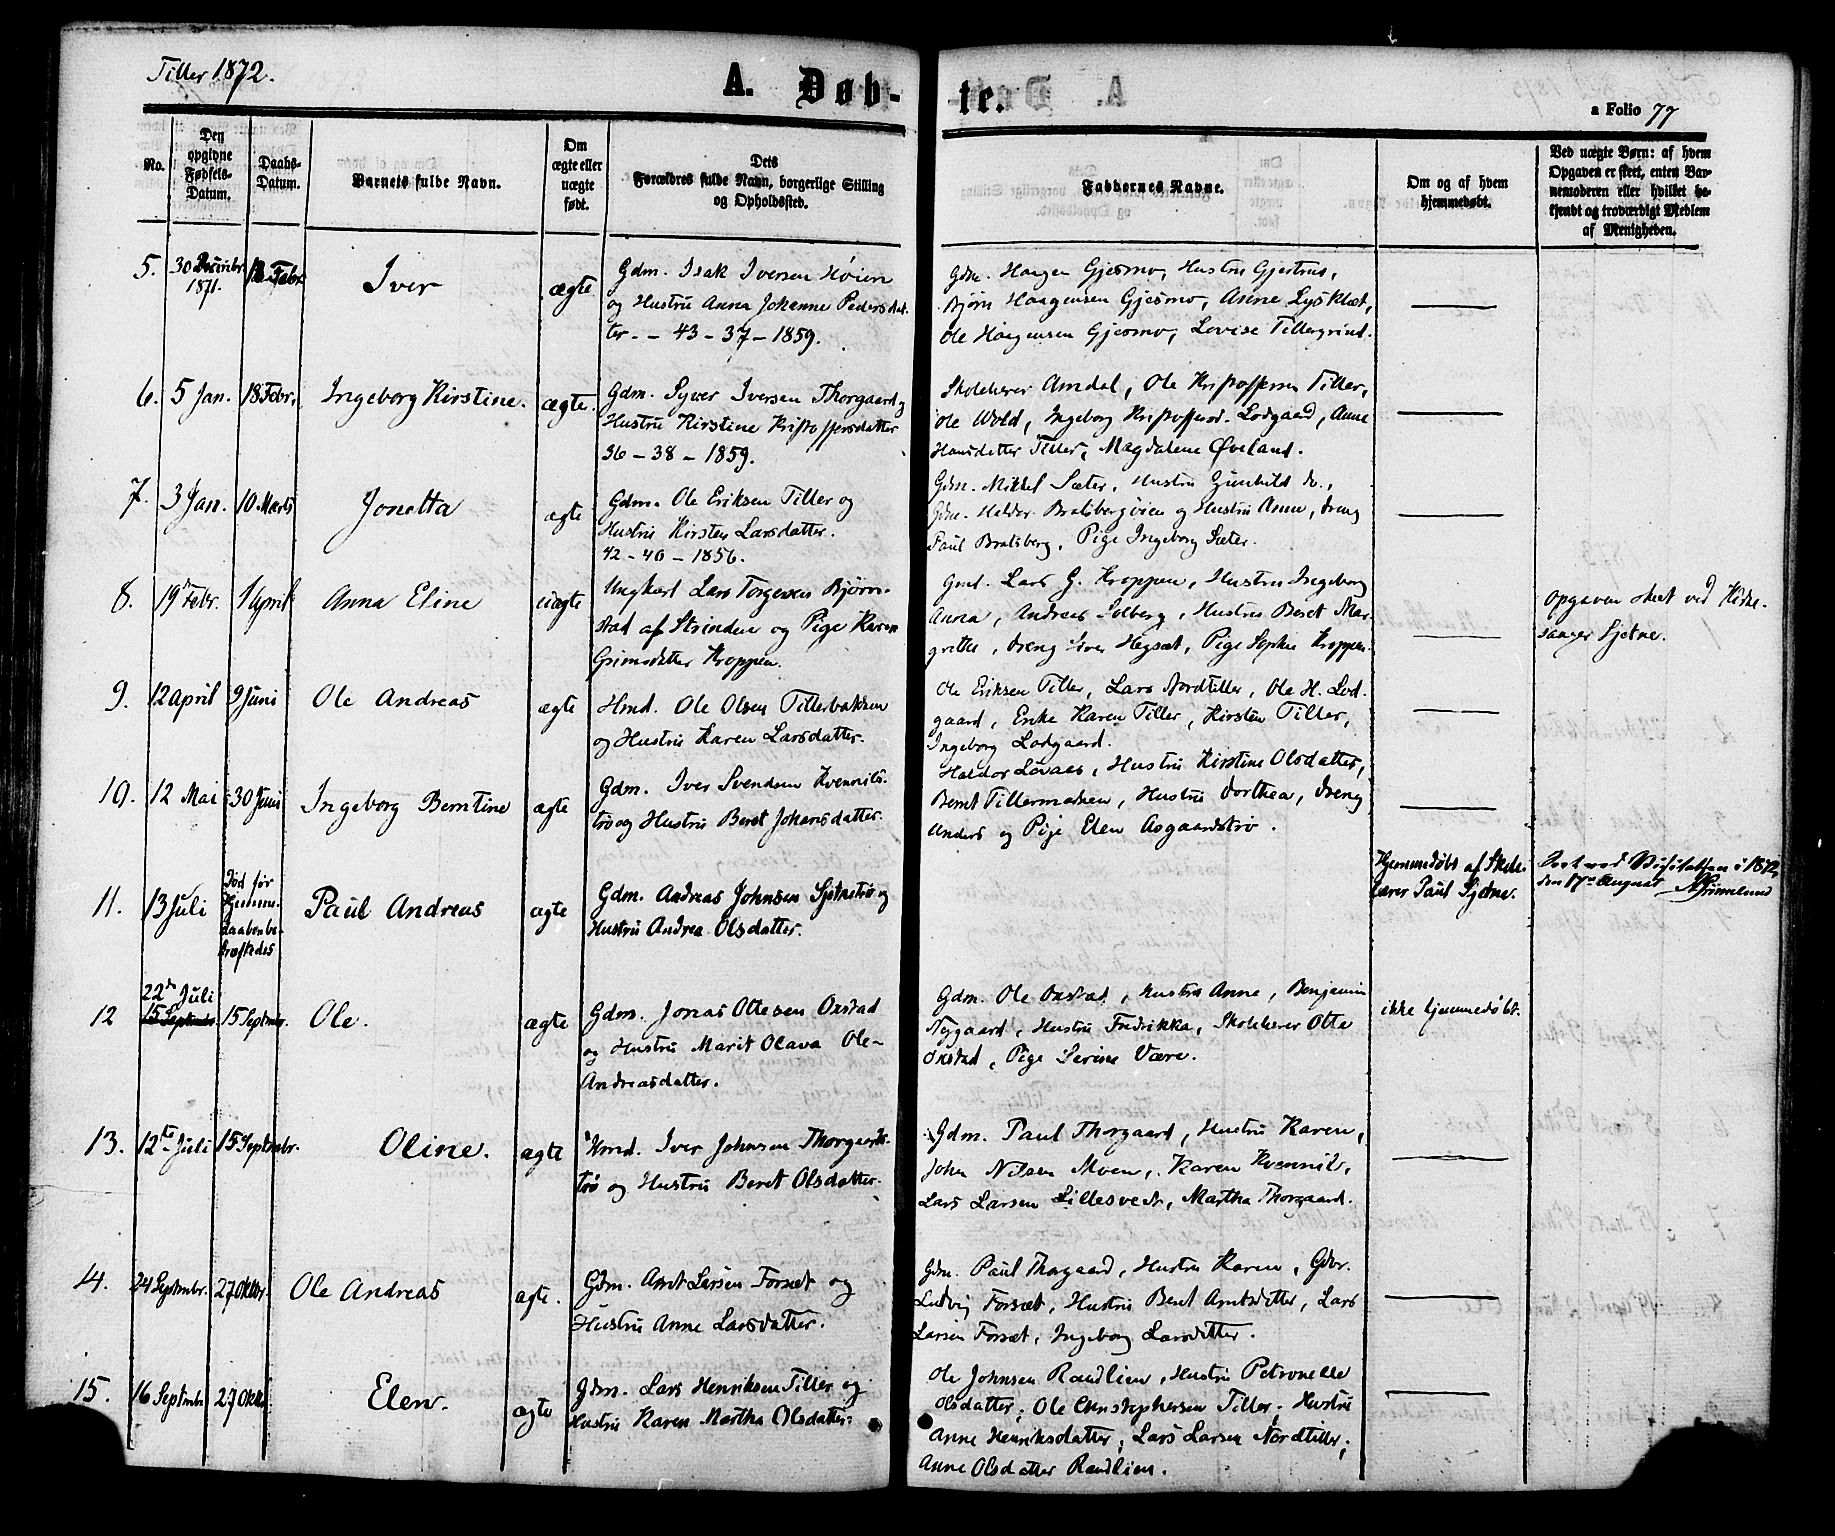 Tiller 1872.
A. Døb-
te.
a Folio 77
No.
Den
opgivne
Fødsels-
Datum.
Daabs-
Datum.
Barnets fulde Navn.
Om
ægte eller
uægte
født.
Dets
Forældres fulde Navn, borgerlige Stilling
og Opholdssted.
Faddernes Navne.
Om og af hvem
hjemmedøbt.
Ved uægte Børn: af hvem
Opgaven er skeet, enten Bar-
nemoderen eller hvilket be-
kjendt og troværdigt Medlem
af Menigheden.
5.
30 Decembr.
1871.
Febr.
Iver
ægte
Gdm. Isak Iversen Høien
og Hustru Anna Johanne Pedersdat-
ter. - 43 - 37 - 1859.
Gdm. Haagen Gjesmo, Hustru Gjertrud,
Bjørn Haagensen Gjesmo, Anne Lysklæt,
Ole Haagensen Gjesmo, Lovise Tillergrind.
6.
5 Jan.
18 Febr.
Ingeborg Kirstine.
ægte.
Gdm. Syver Iversen Thorgaard og
Hustru Kirstine Kristoffersdatter
36 - 38 - 1859.
Skolelærer Amdal, Ole Kristoffersen Tiller,
Ole Wold, Ingeborg Kristoffersd. Lodgaard, Anne
Hansdatter Tiller, Magdalene Øveland.
7.
3 Jan.
10 Marts
Jonetta
ægte
Gdm. Ole Eriksen Tiller og
Hustru Kirsten Larsdatter.
42 - 40 - 1856.
Gdm. Mikkel Sæter, Hustru Gunhild do.,
Gdm. Haldor Bratsbergvien og Hustru Anne, Dreng
Paul Bratsberg, Pige Ingeborg Sæter.
8.
19d Febr.
1 April
Anna Eline
uægte
Ungkarl Lars Torgersen Bjørn-
stad af Strinden og Pige Karen
Grimsdatter Kroppen.
Gmd. Lars G. Kroppen, Hustru Ingeborg
Anna, Andreas Solberg, Hustru Beret Mar-
grethe, Dreng Iver Hegsæt, Pige Sophie Kroppen.
Opgaven skeet ved Kirke-
sanger Sjetne.
9.
12 April
9 Juni
Ole Andreas
ægte
Hmd. Ole Olsen Tillerbakken
og Hustru Karen Larsdatter.
Ole Eriksen Tiller, Lars Nordtiller, Ole H. Lod-
gaard, Enke Karen Tiller, Kirsten Tiller,
Ingeborg Lodgaard.
10.
12 Mai
30 Juni
Ingeborg Berntine
ægte
Gdm. Iver Svendsen Kvennils-
trø og Hustru Beret Johansdatter.
Haldor Løvaas, Hustru Kirstine Olsdatter,
Bernt Tillermælen, Hustru Dorthea, Dreng
Anders og Pige Elen Aasgaardstrø.
11.
13 Juli
Død før
Hjemme-
daaben be-
kræftedes
Paul Andreas
ægte
Gdm. Andreas Johnsen Sjetnetrø og
Hustru Andrea Olsdatter.
Hjemmedøbt af Skole-
lærer Paul Sjetne.
ved Visitatsen i 1872
den 17de August Grimelund
12
22de Juli
15 Septmbr.
15 Septmbr.
Ole.
ægte
Gdm. Jonas Ottesen Oxstad
og Hustru Marit Olava Ole-
Andreasdatter.
Gdm. Ole Oxstad, Hustru Anne, Benjamin
Nygaard, Hustru Fredrikka, Skolelærer Otte
Oxstad, Pige Serine Være.
ikke hjemmedøbt.
13.
12te Juli
15 Septmbr.
Oline.
ægte
Hmd. Iver Johnsen Thorgaards-
trø og Hustru Beret Olsdatter.
Gdm. Paul Thorgaard, Hustru Karen,
John Nilsen Moen, Karen Kvennil,
Lars Larsen Lillesvedr, Martha Thorgaard.
14.
24 Septmbr.
27 Oktbr.
Ole Andreas
ægte.
Gdm. Arnt Larsen Forsæt og
Hustru Anne Larsdatter.
Gdm. Paul Thorgaard, Hustru Karen, Gdbr.
Ludvig Forsæt, Hustru Beret Arntsdatter, Lars
Larsen Forsæt, Ingeborg Larsdatter.
15.
16 Septmbr
27 Oktbr.
Elen.
ægte
Gdm. Lars Henriksen Tiller og
Hustru Karen Martha Olsdatter.
Ole Johnsen Randlien, Hustru Petronelle
Olsdatter, Ole Christophersen Tiller. Hustru
Anne Henriksdatter, Lars Larsen Nordtiller,
Anne Olsdatter Randlien.